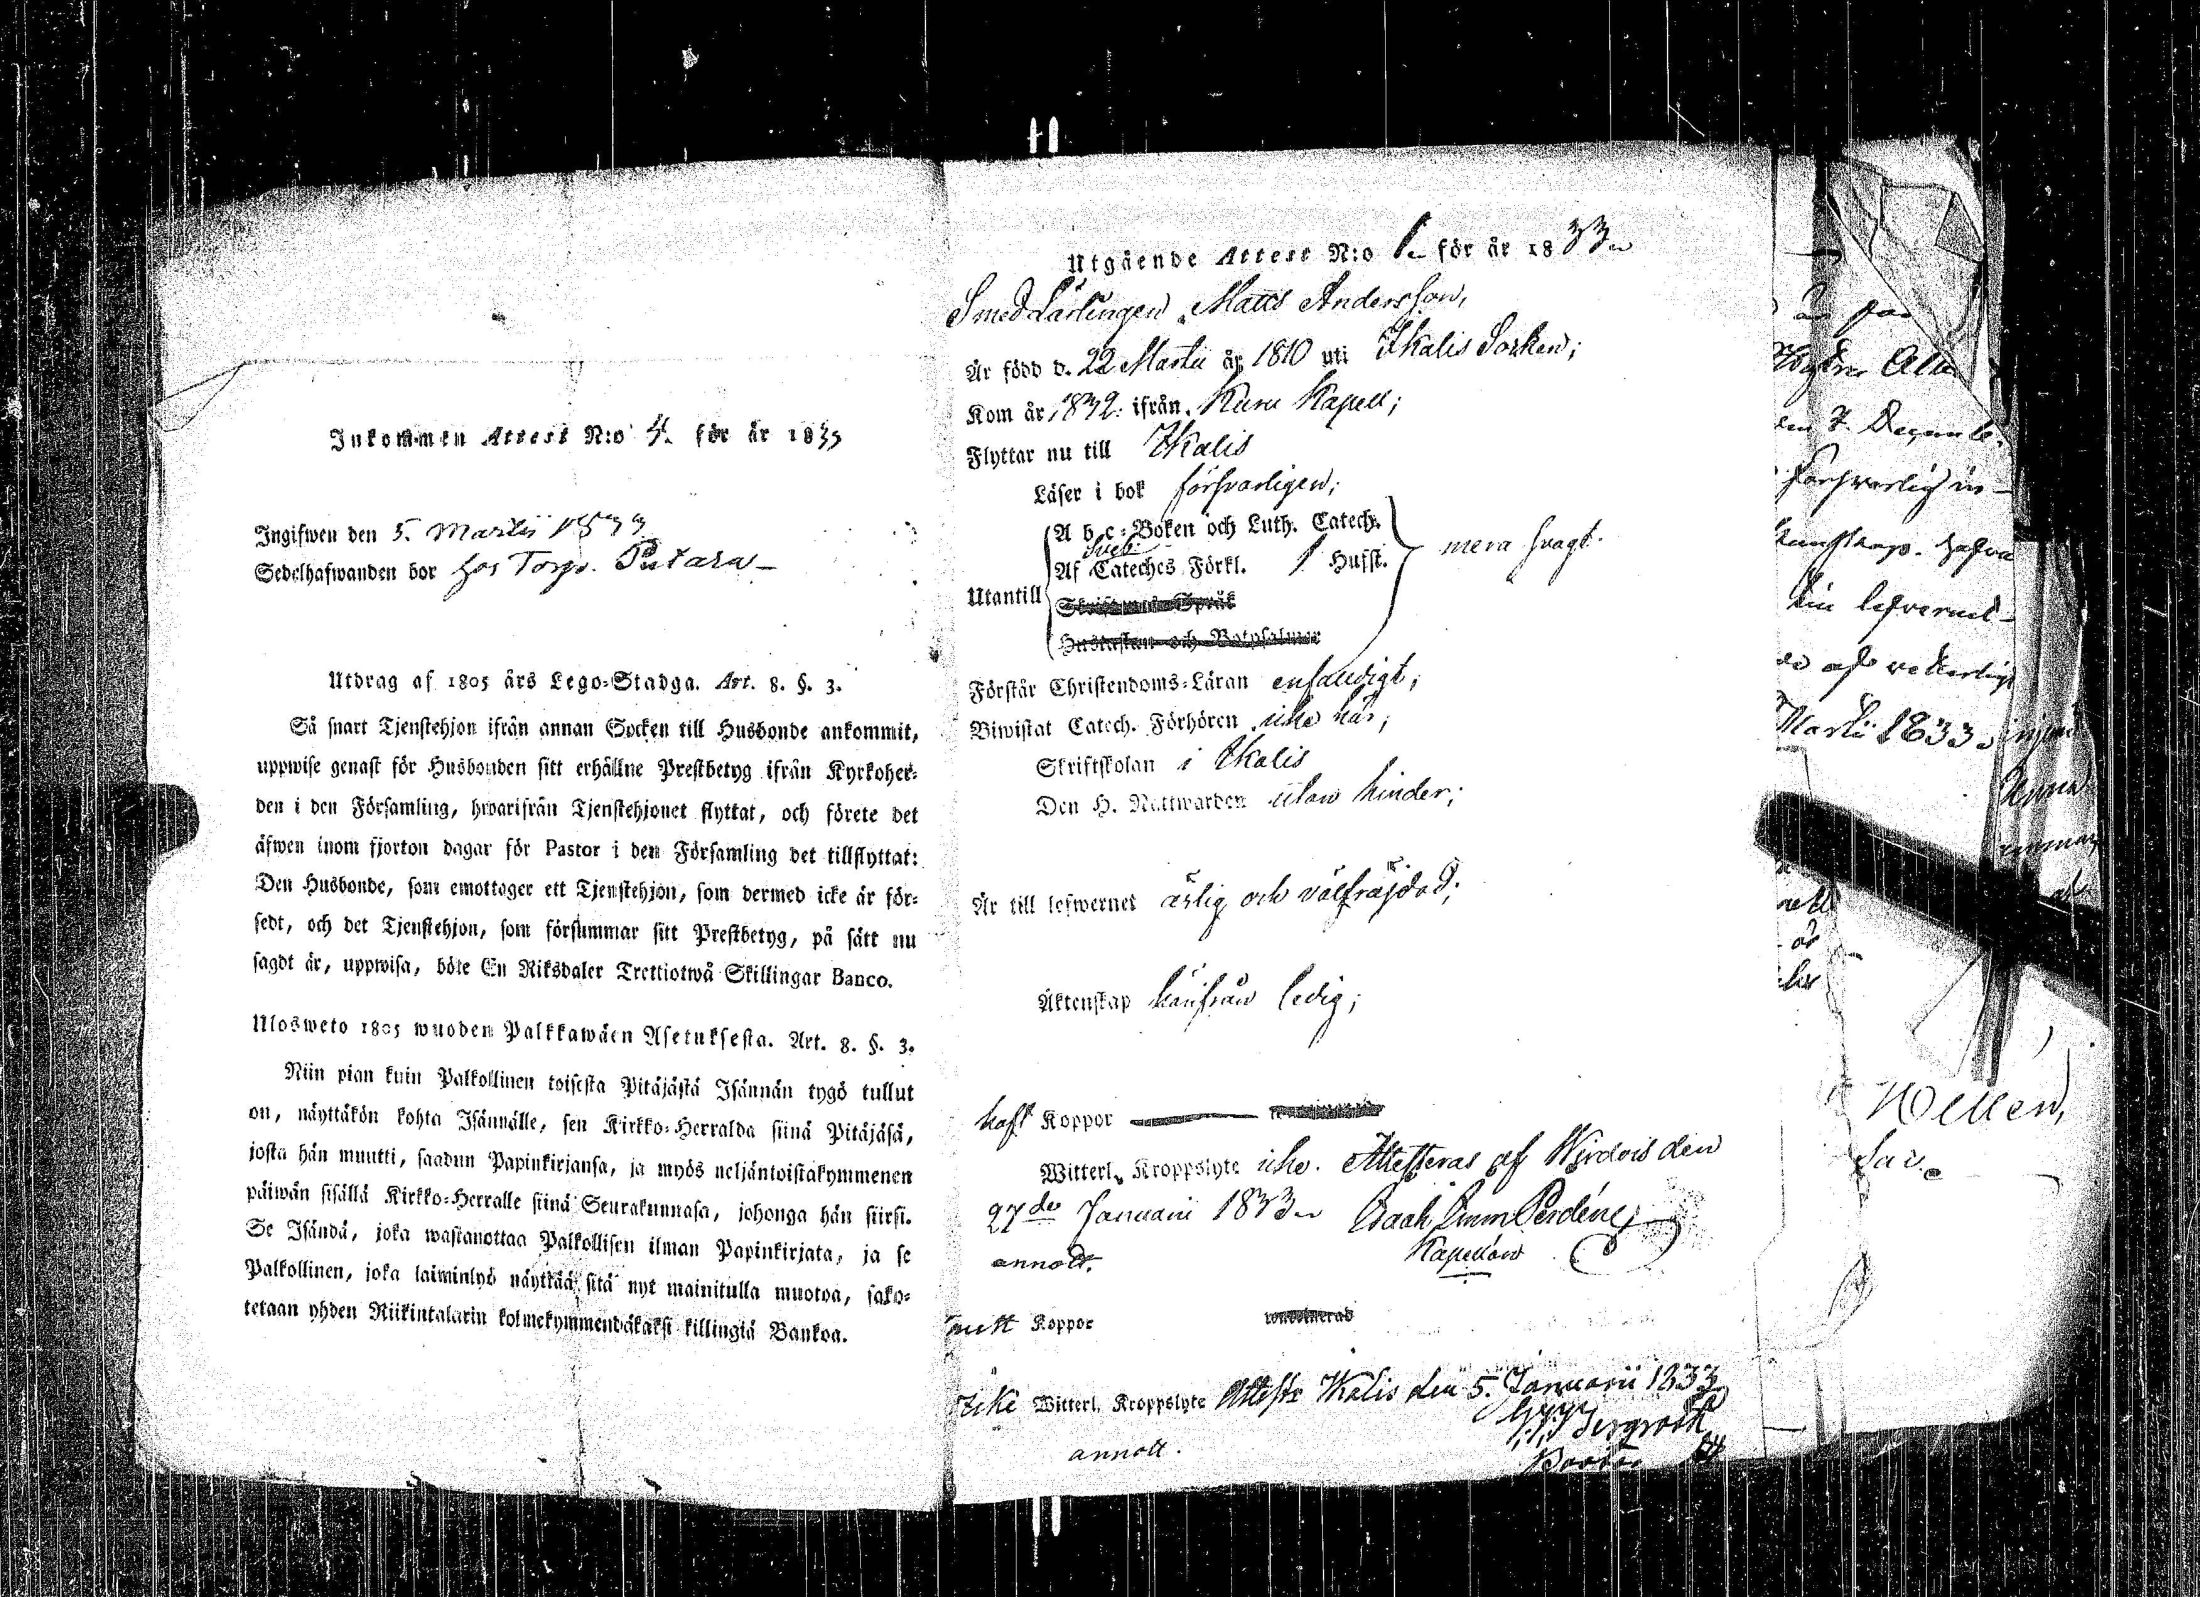 Inkommen Attest N:o 4. för år 1833
Ingifwen den 5. Martii 1833
Sedelhafwanden bor hos Torp. Putara
Utdrag af 1805 års Lego-Stadga. Art. 8. §. 3.
Så snart Tjenstehjon ifrån annan Socken till Husbonde ankommit,
uppwise genast för Husbonden sitt erhållne Prestbetyg ifrån Kyrkoher-
den i den Församling, hwarifrån Tjenstehjonet flyttat, och förete det
äfwen inom fjorton dagar för Pastor i den Församling det tillflyttat:
Den Husbonde, som emottager ett Tjenstehjon, som dermed icke är för-
sedt, och det Tjenstehjon, som försummar sitt Prestbetyg, på sätt nu
sagdt är, uppwisa, böte En Riksdaler Trettiotwå Skillingar Banco.
Ulosweto 1805 wuoden Palkkawäen Asetuksesta. Art. 8. §. 3.
Niin pian kuin Palkollinen toisesta Pitäjästä Isännän tygö tullut
on, näyttäkön kohta Isännälle, sen Kirkko-Herralda siinä Pitäjäsä,
josta hän muutti, saadun Papinkirjansa, ja myös neljäntoistakymmenen
päiwän sisällä Kirkko-Herralle siinä Seurakunnasa, johonga hän siirsi.
Se Isändä, joka wastanottaa Palkollisen ilman Papinkirjata, ja se
Palkollinen, joka laiminlyö näyttää sitä nyt mainitulla muotoa, sako-
tetaan yhden Riikintalarin kolmekymmendäkaksi killingiä Bankoa.
Utgående Attest N:o 1 för år 1833
Smedlärlingen Matts Andersson,
Är född d. 22 Martii år 1810 uti Ikalis Socken;
Kom år 1832 ifrån Kuru Kapell;
Flyttar nu till Ikalis
Läser i bok försvarligen;
A b c-Boken och Luth. Catech.
Sveb.
Af Cateches Förkl. / Husst. mera svagt.
Utantill
Skriftenes Språk
Hustaflan och Botpsalmer
Förstår Christendoms-Läran enfaldigt;
Biwistat Catech. Förhören icke här;
Skriftskolan i Ikalis
Den H. Nattwarden utan hinder;
Är till lefwernet ärlig och välfräjdad;
Äktenskap härifrån ledig;
haft Koppor
Witterl. Kroppslyte icke. Attesteras af Wirdois den
27de Januarii 1833
Kapellan
annot.
haft Koppor
Icke Witterl. Kroppslyte Attestr Ikalis den 5. Januarii 1833
annott.
Martii 1833